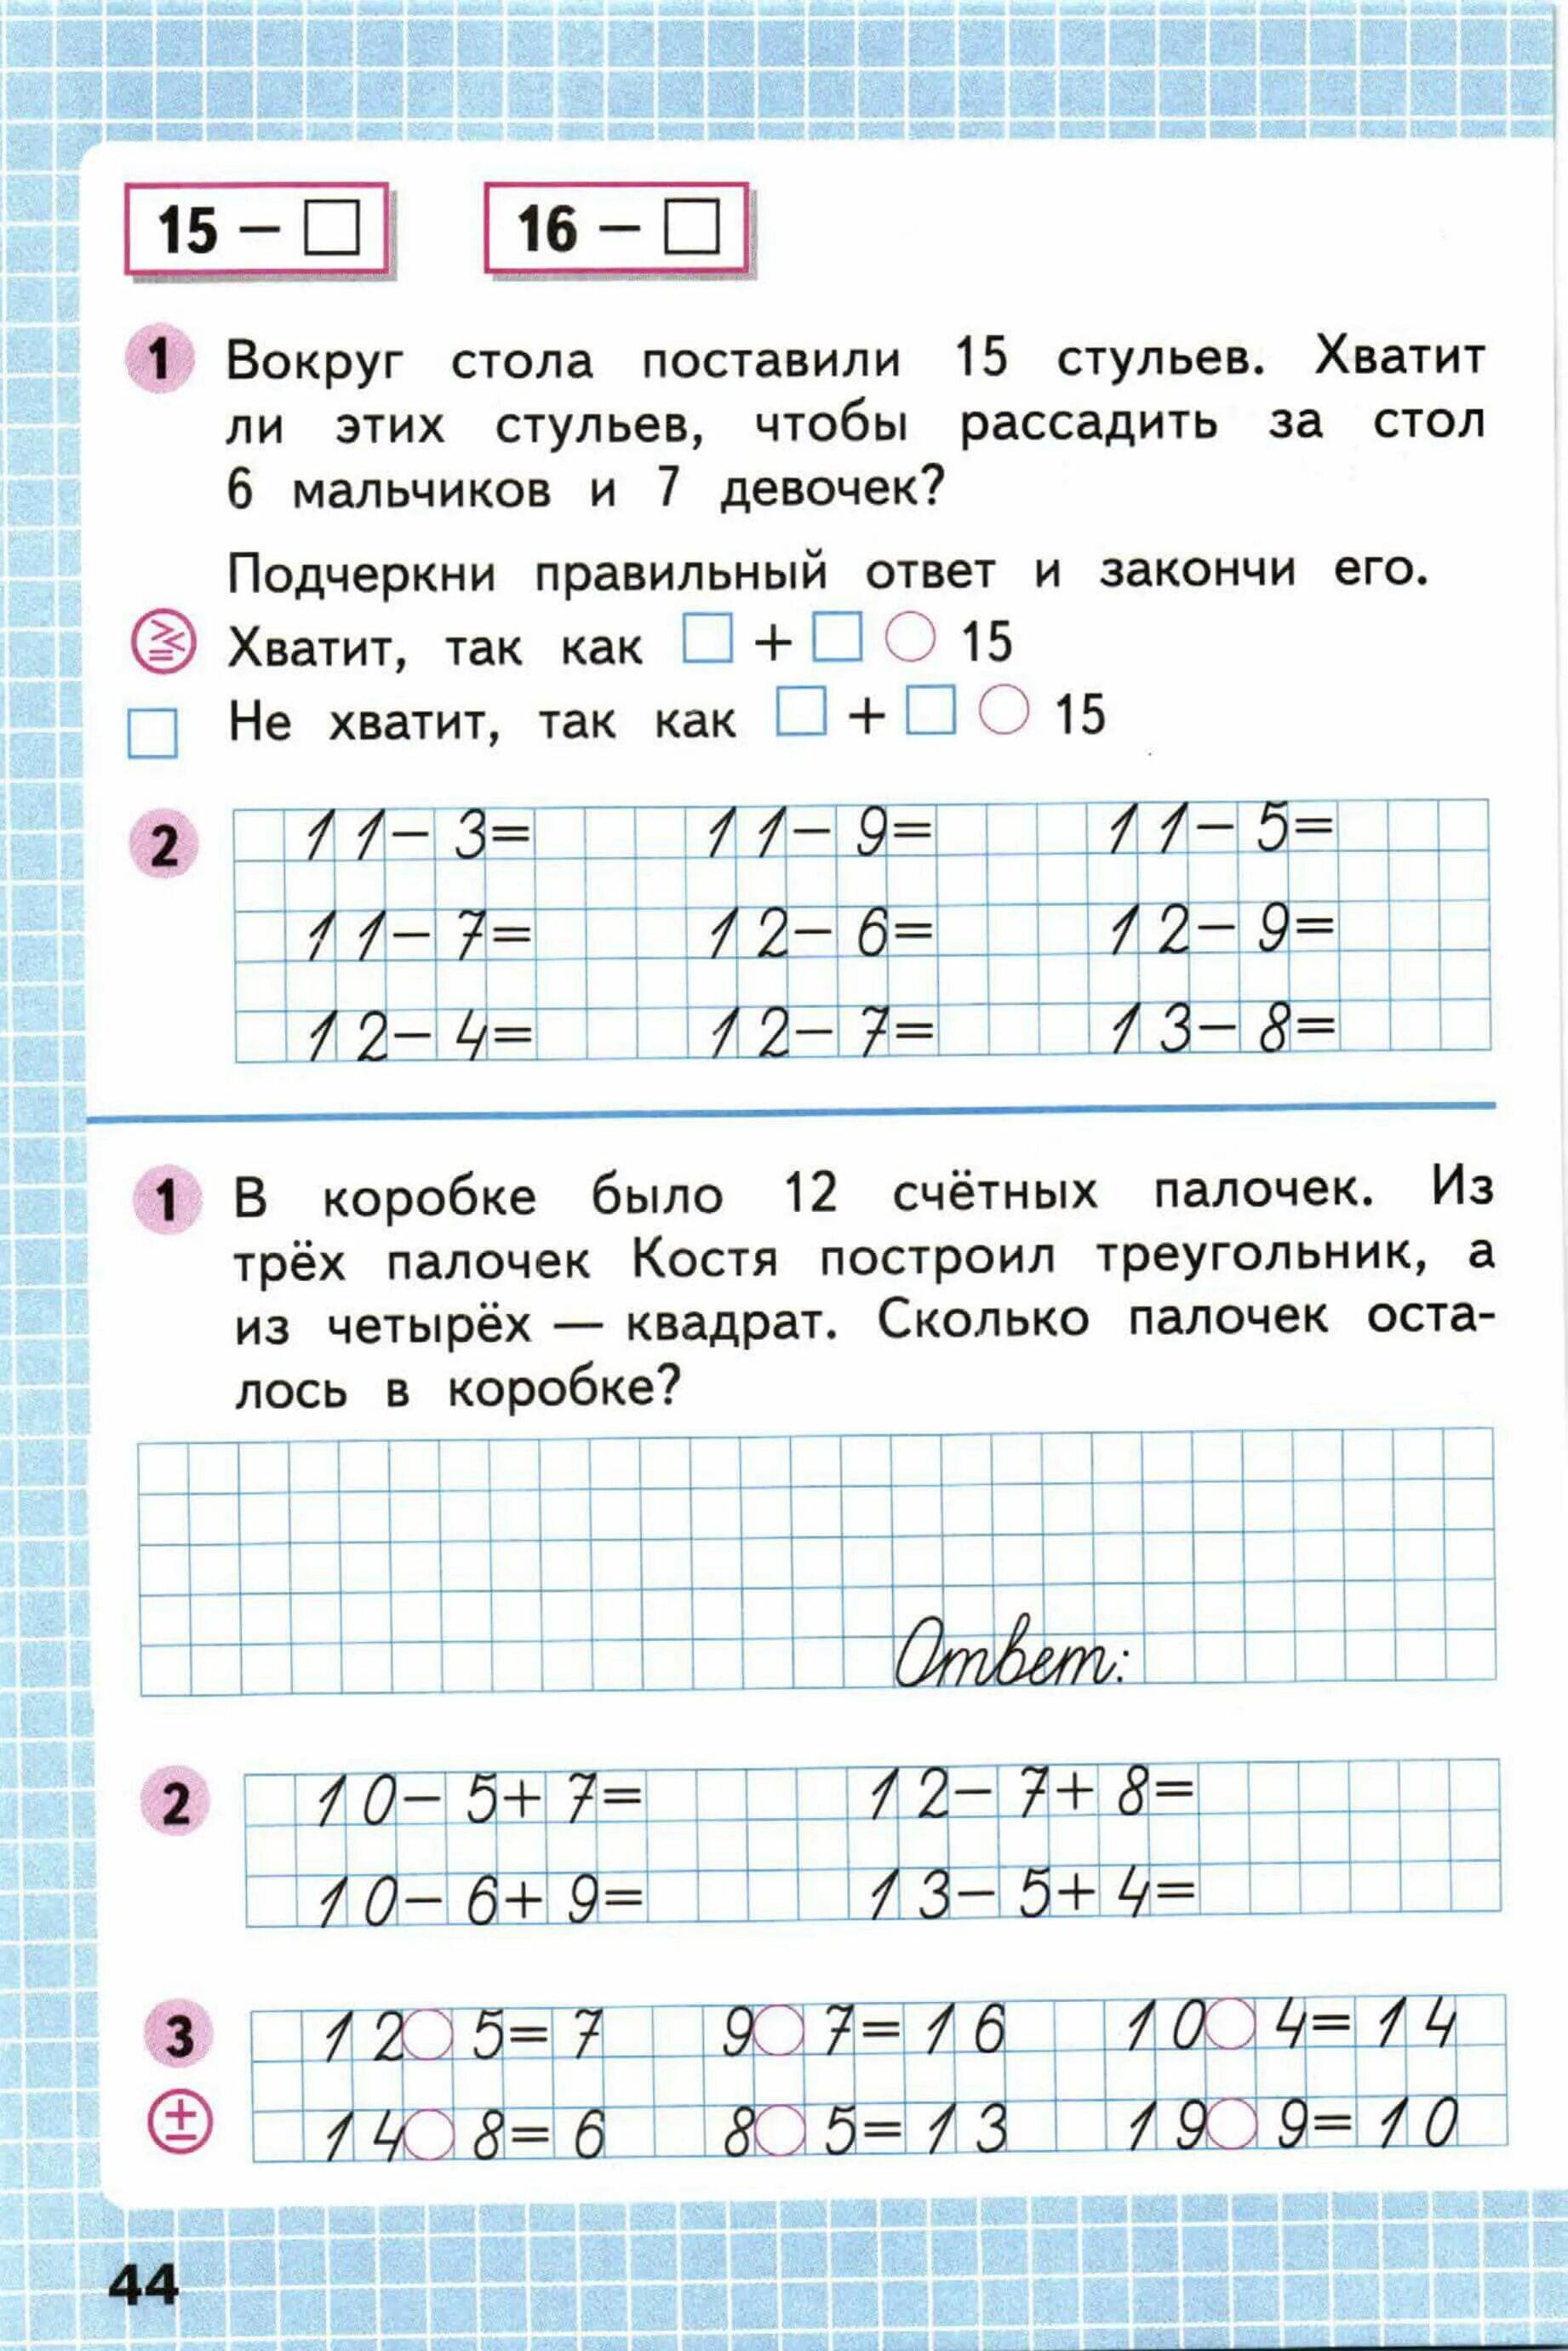 15 – □ 16 – □
1 Вокруг стола поставили 15 стульев. Хватит
ли этих стульев, чтобы рассадить за стол
6 мальчиков и 7 девочек?
Подчеркни правильный ответ и закончи его.
Хватит, так как □ + □ ○ 15
Не хватит, так как □ + □ ○ 15
2 11 – 3 = 11 – 9 = 11 – 5 =
11 – 7 = 12 – 6 = 12 – 9 =
12 – 4 = 12 – 7 = 13 – 8 =
1 В коробке было 12 счётных палочек. Из
трёх палочек Костя построил треугольник, а
из четырёх — квадрат. Сколько палочек оста-
лось в коробке?
Ответ:
2 10 – 5 + 7 = 12 – 7 + 8 =
10 – 6 + 9 = 13 – 5 + 4 =
3 12 ○ 5 = 7 9 ○ 7 = 16 10 ○ 4 = 14
± 14 ○ 8 = 6 8 ○ 5 = 13 19 ○ 9 = 10
44